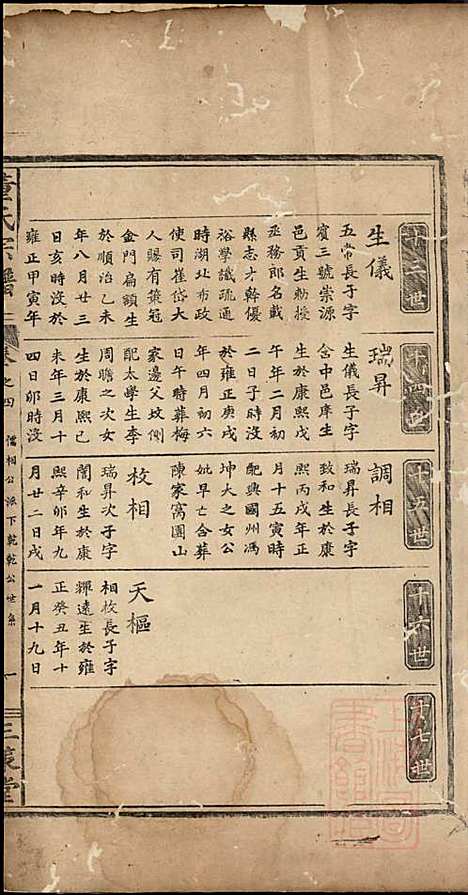 十三世
生儀
五常長子字
賓三號崇源
邑貢生勅授
丞務郎名載
縣志才幹優
裕學識疏通
時湖北布政
使司崔岱大
人賜有蓂冠
金門扁額生
於順治乙未
年八月廿三
日亥時沒於
雍正甲寅年
十四世
瑞昇
生儀長子字
含中邑庠生
生於康熙戊
午年二月初
二日子時沒
於雍正庚戌
年四月初六
日午時葬梅
家邊父坟側
配太學生李
周瞻之次女
生於康熙己
未年三月十
四日卯時沒
十五世
調相
瑞昇長子字
致和生於康
熙丙戌年正
月十五寅時
配興國州馮
坤大之女公
妣早亡合葬
陳家窩園山
枚相
瑞昇次子字
誾和生於康
熙辛卯年九
月廿二日戌
十六世
天樞
相枚長子字
耀遠生於雍
正癸丑年十
一月十九日
十七世
董氏宗譜
卷之四
儒相公派下乾乾公世系
一
三策堂